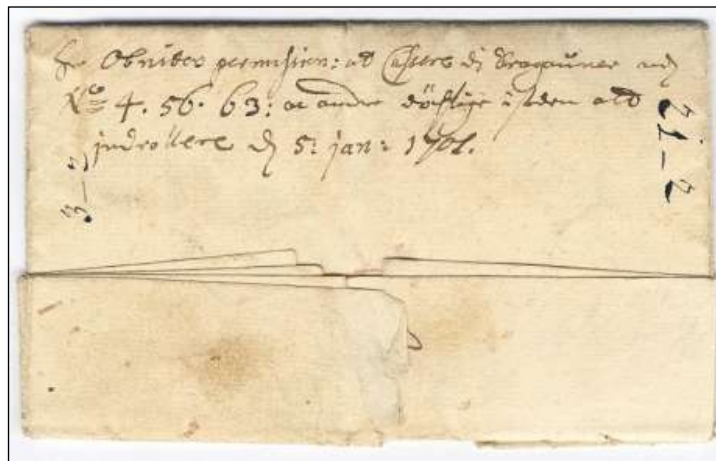 Hr Obristes permission: at Casere di Dragauner
No 4. 56. 63: oc andre døgtige i steden att
indrollere d 5: jan: 1701.
3_3
21_2